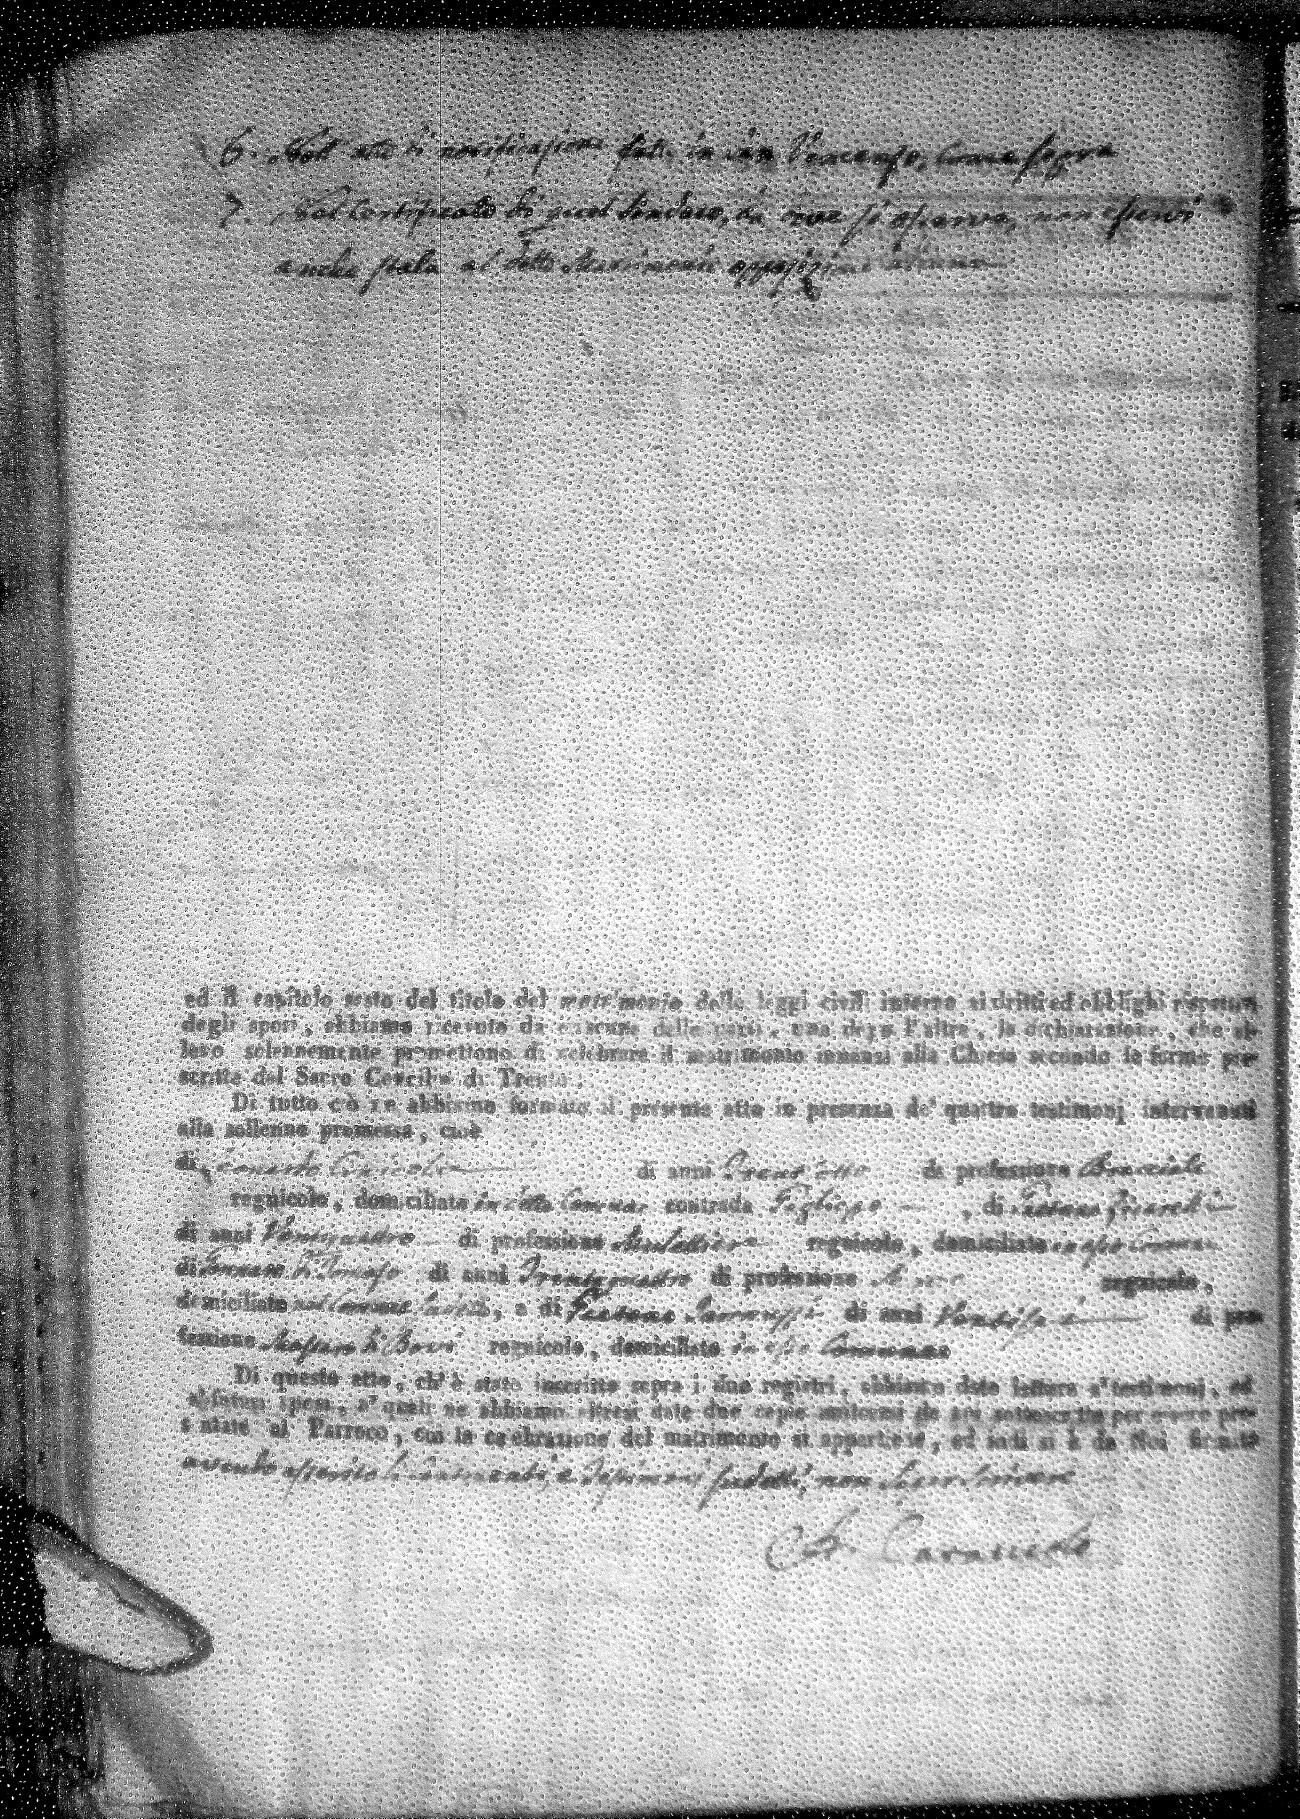 6. atti di notificazione fatti in San Vincenzo, come sopra
7. Dal Certificato di quel Sindaco, da cui si osserva, non esservi
anche colà al detto Matrimonio opposizione alcuna
ed il capitolo sesto del titolo del matrimonio delle leggi civili intorno ai dritti ed obblighi rispettivi
degli sposi, abbiamo ricevuto da ciascuna delle parti, una dopo l'altra, la dichiarazione, che el-
leno solennemente promettono di celebrare il matrimonio innanzi alla Chiesa secondo le forme pre-
scritte dal Sacro Concilio di Trento.
Di tutto ciò ne abbiamo formato il presente atto in presenza de' quattro testimonj intervenuti
alla sollenne promessa, cioè
di di anni Trent'otto di professione Bracciale
regnicolo, domiciliato in detto Comune contrada , di Gaetano
di anni Ventiquattro di professione regnicolo, domiciliato in esso Comune
di Gennaro di Tomaso di anni Trentaquattro di professione regnicolo,
domiciliato nel Comune , e di Gaetano di anni Ventisei di pro-
fessione Massaro di Bovi regnicolo, domiciliato in esso Comune
Di questo atto, ch'è stato inscritto sopra i due registri, abbiamo dato lettura a' testimonj, ed
a' futuri sposi, a' quali ne abbiamo altresì date due copie uniformi da noi sottoscritte per essere pre-
sentate al Parroco, cui la celebrazione del matrimonio si appartiene, ed indi si è da Noi firmato
avendo asserito li Contraenti, e Testimonj sudetti, non saper scrivere